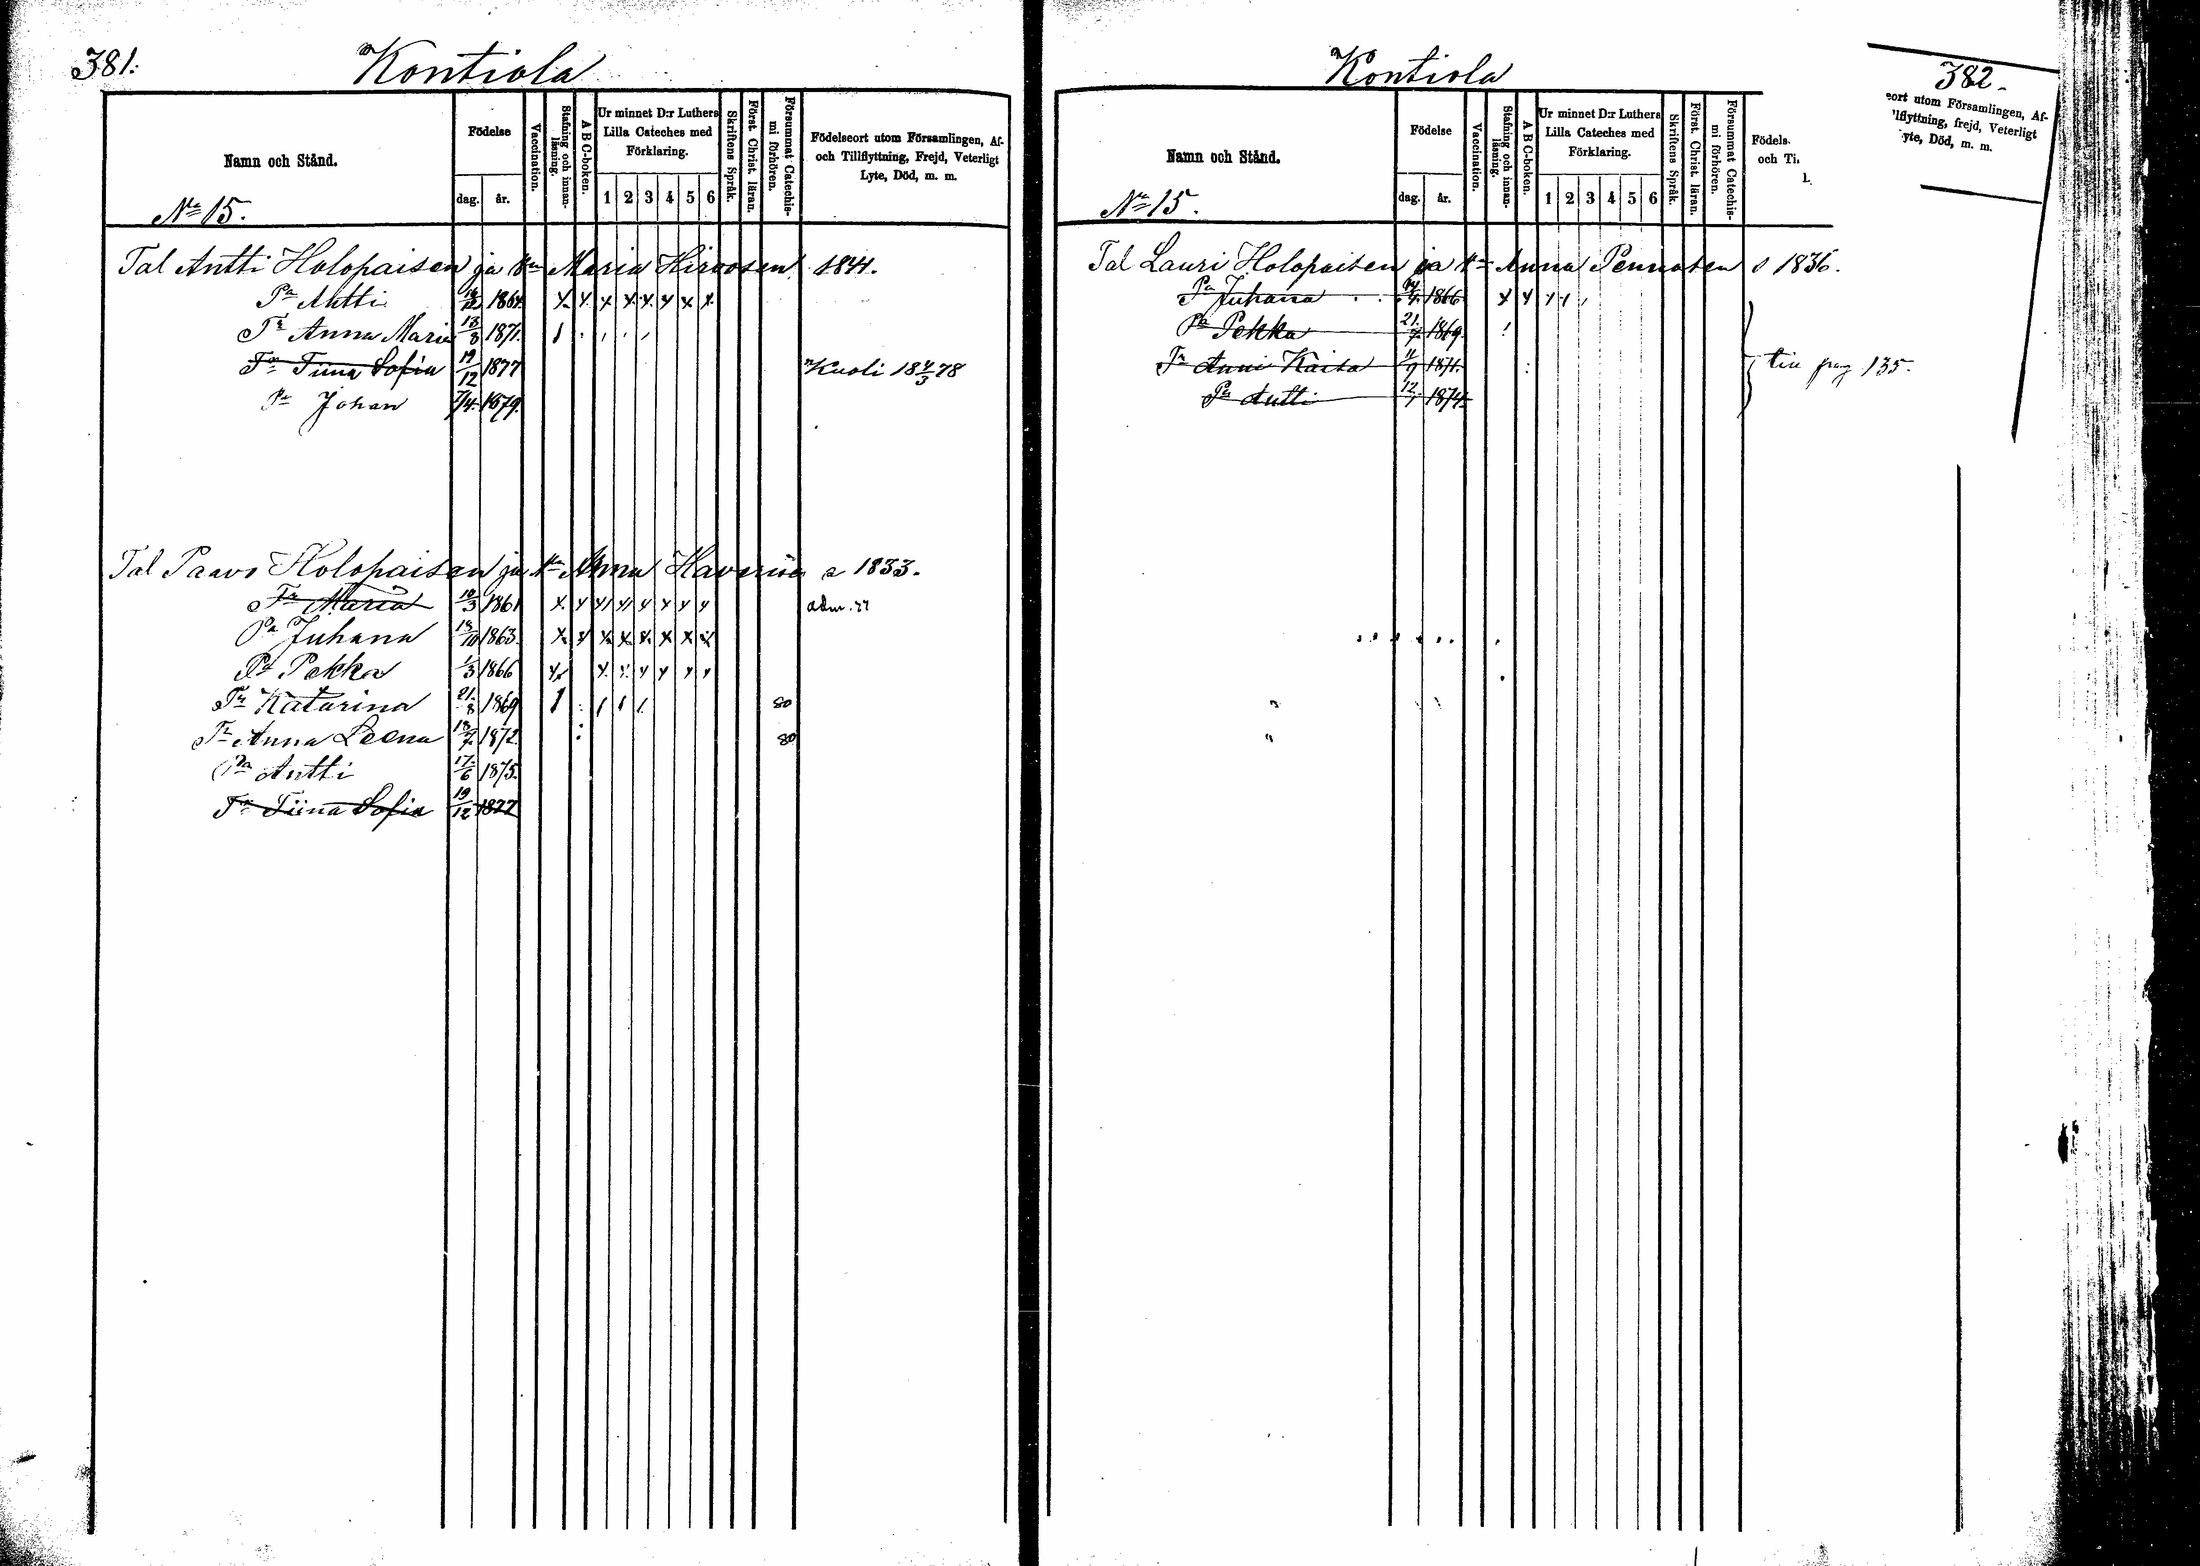 381.
Kontiola
Namn och Stånd.
No 15.
Födelse
dag. år.
Vaccination.
Stafning och innanläsning.
A B C-boken.
Ur minnet D:r Luthers
Lilla Cateches med
Förklaring.
1 2 3 4 5 6
Skriftens Språk.
Först. Christ. läran.
Försummat Catechismi förhören.
Födelseort utom Församlingen, Af-
och Tillflyttning, Frejd, Veterligt
Lyte, Död, m. m.
Tal Antti Holopaisen ja Vn Maria Hirvosen 1844.
Pa Antti 1864.
Tr Anna Maria 13/3 1871.
Tr Tiina Sofia 19/12 1877 Kuoli 18 4/3 78
Pa Johan 7/4. 1879.
Tal Paavo Holopaisen ja Vn Anna s 1833.
Tr Maria 10/3 1861 adm. 77
Pa Juhana 18/10 1863.
Pa Pekka 1/3 1866
Tr Katarina 21/8 1869 80
Tr Anna Leena 18/7 1872. 80
Pa Antti 17/6 1875.
Tr Tiina Sofia 19/12 1877
382.
Kontiola
Namn och Stånd.
No 15.
Födelse
dag. år.
Vaccination.
Stafning och innanläsning.
A B C-boken.
Ur minnet D:r Luthers
Lilla Cateches med
Förklaring.
1 2 3 4 5 6
Skriftens Språk.
Först. Christ. läran.
Försummat Catechismi förhören.
Födels.
och Ti.
eort utom Församlingen, Af-
llflyttning, frejd, Veterligt
yte, Död, m. m.
Tal Lauri Holopaisen ja Vn Anna Pennasen s 1836.
Pa Juhana 1866
Pa Pekka 21/7 1869.
Tr Anni Kaisa 11/9 1871.
Pa Antti 12/1 1874.
tiu pag 135.